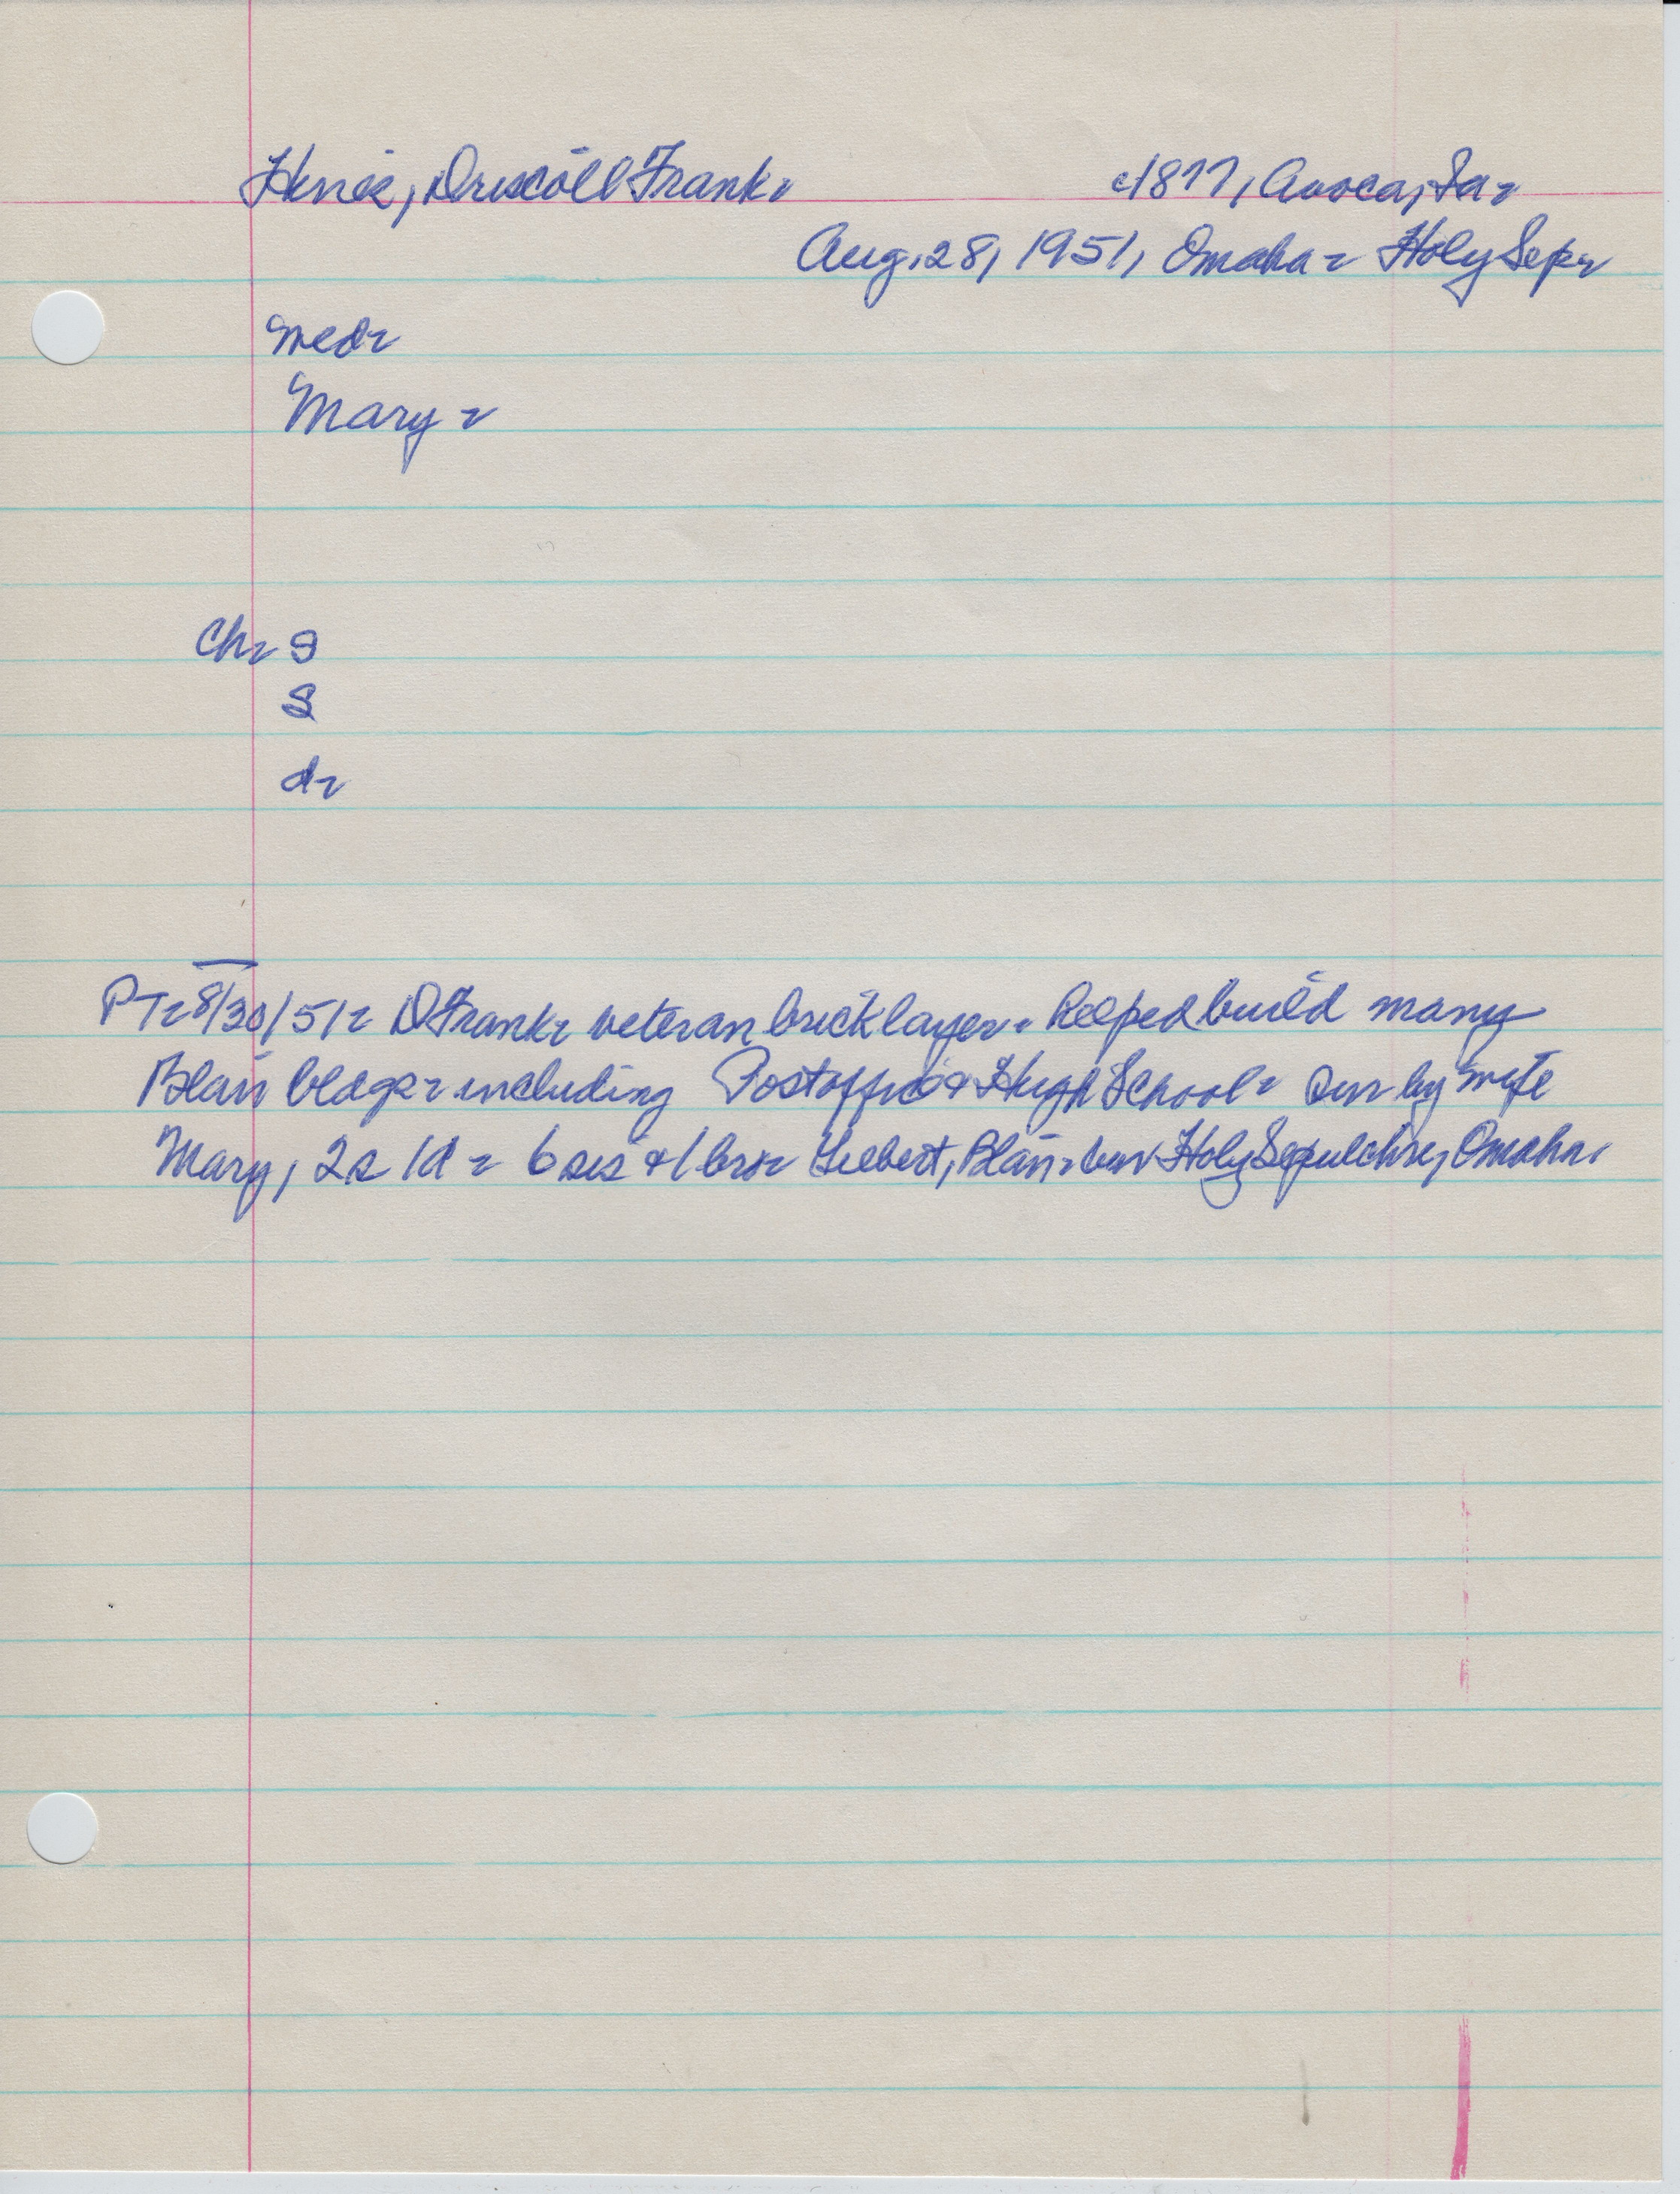 Driscoll Frank- c1877, Avoca, Ia-
Aug. 28, 1951, Omaha - Holy Sep-
Med-
Mary -
Ch- S
S
d-
PT-8/30/51- D Frank- veteran bricklayer- helped build many
Blair bldgs- including Postoffice & High School- sur by wife
Mary, 2s 1d - 6 sis & 1 bro- Gilbert, Blair- bur Holy Sepulchre, Omaha.